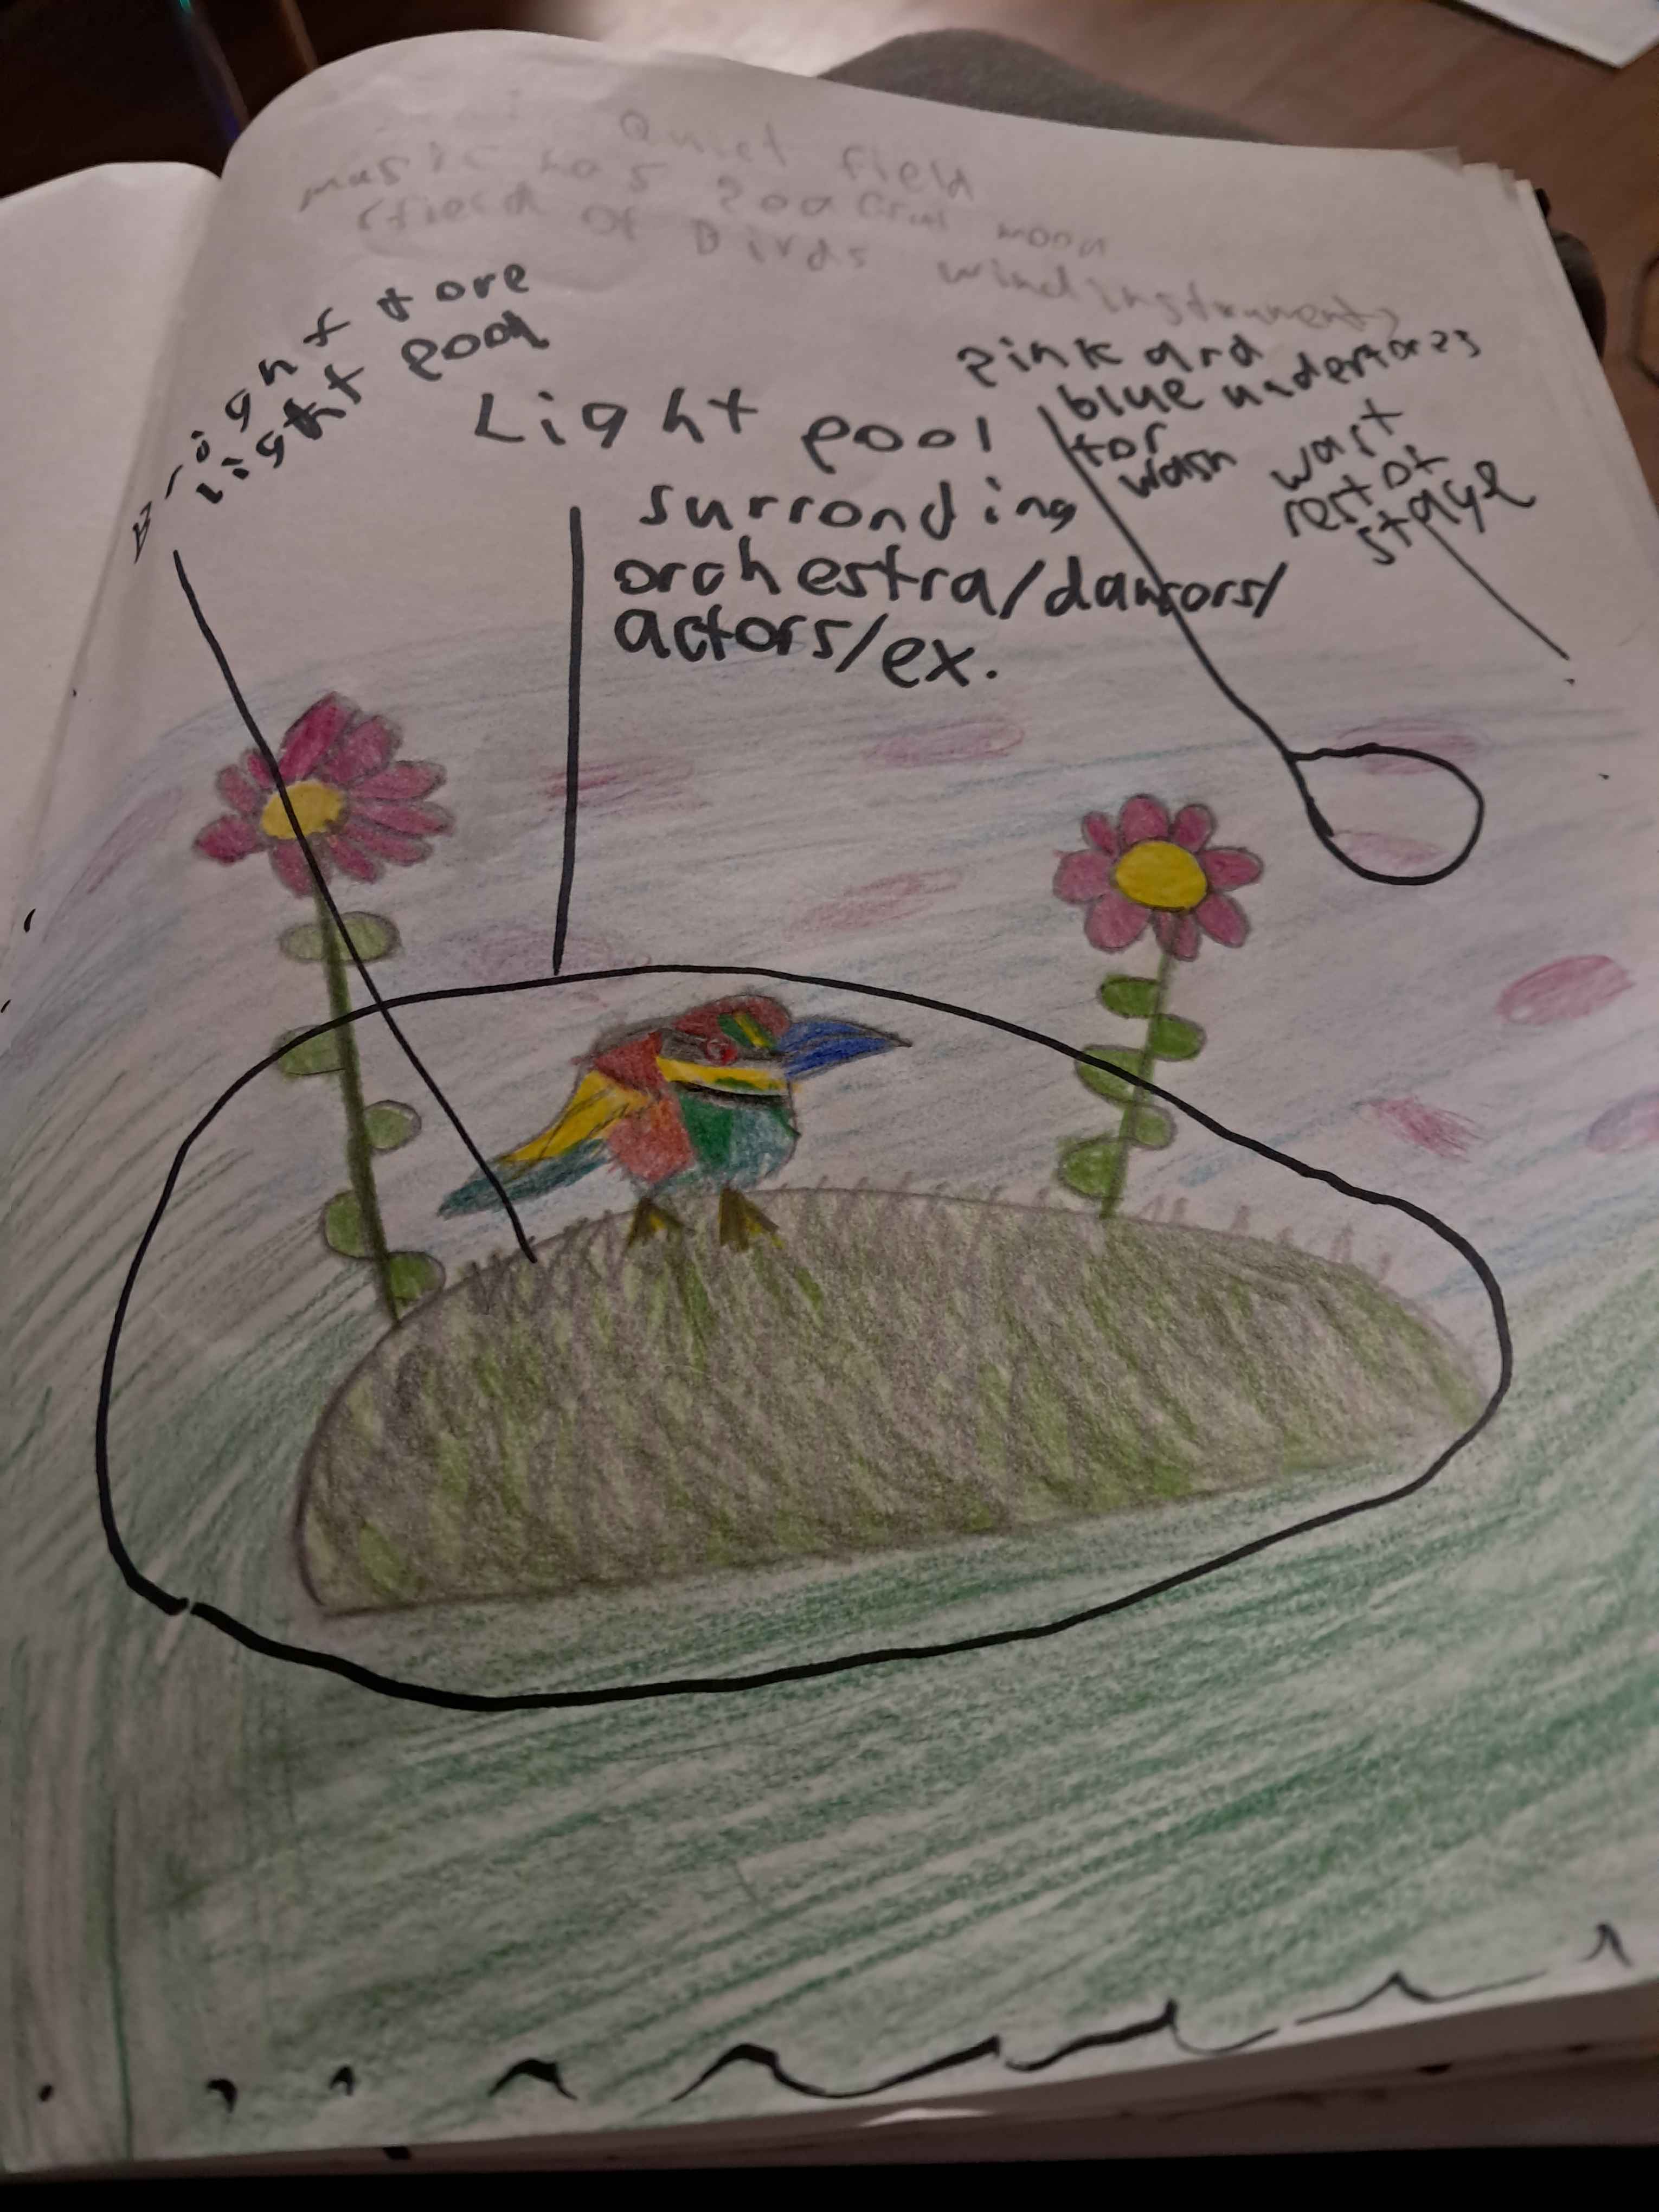 Quiet field
music has peaceful mood
(field of Birds wind instruments
Bright tore
light pool
Light pool
surronding
orchestra/dancors/
actors/ex.
pink and
blue undertones
for
wash
wast
rest of
stage